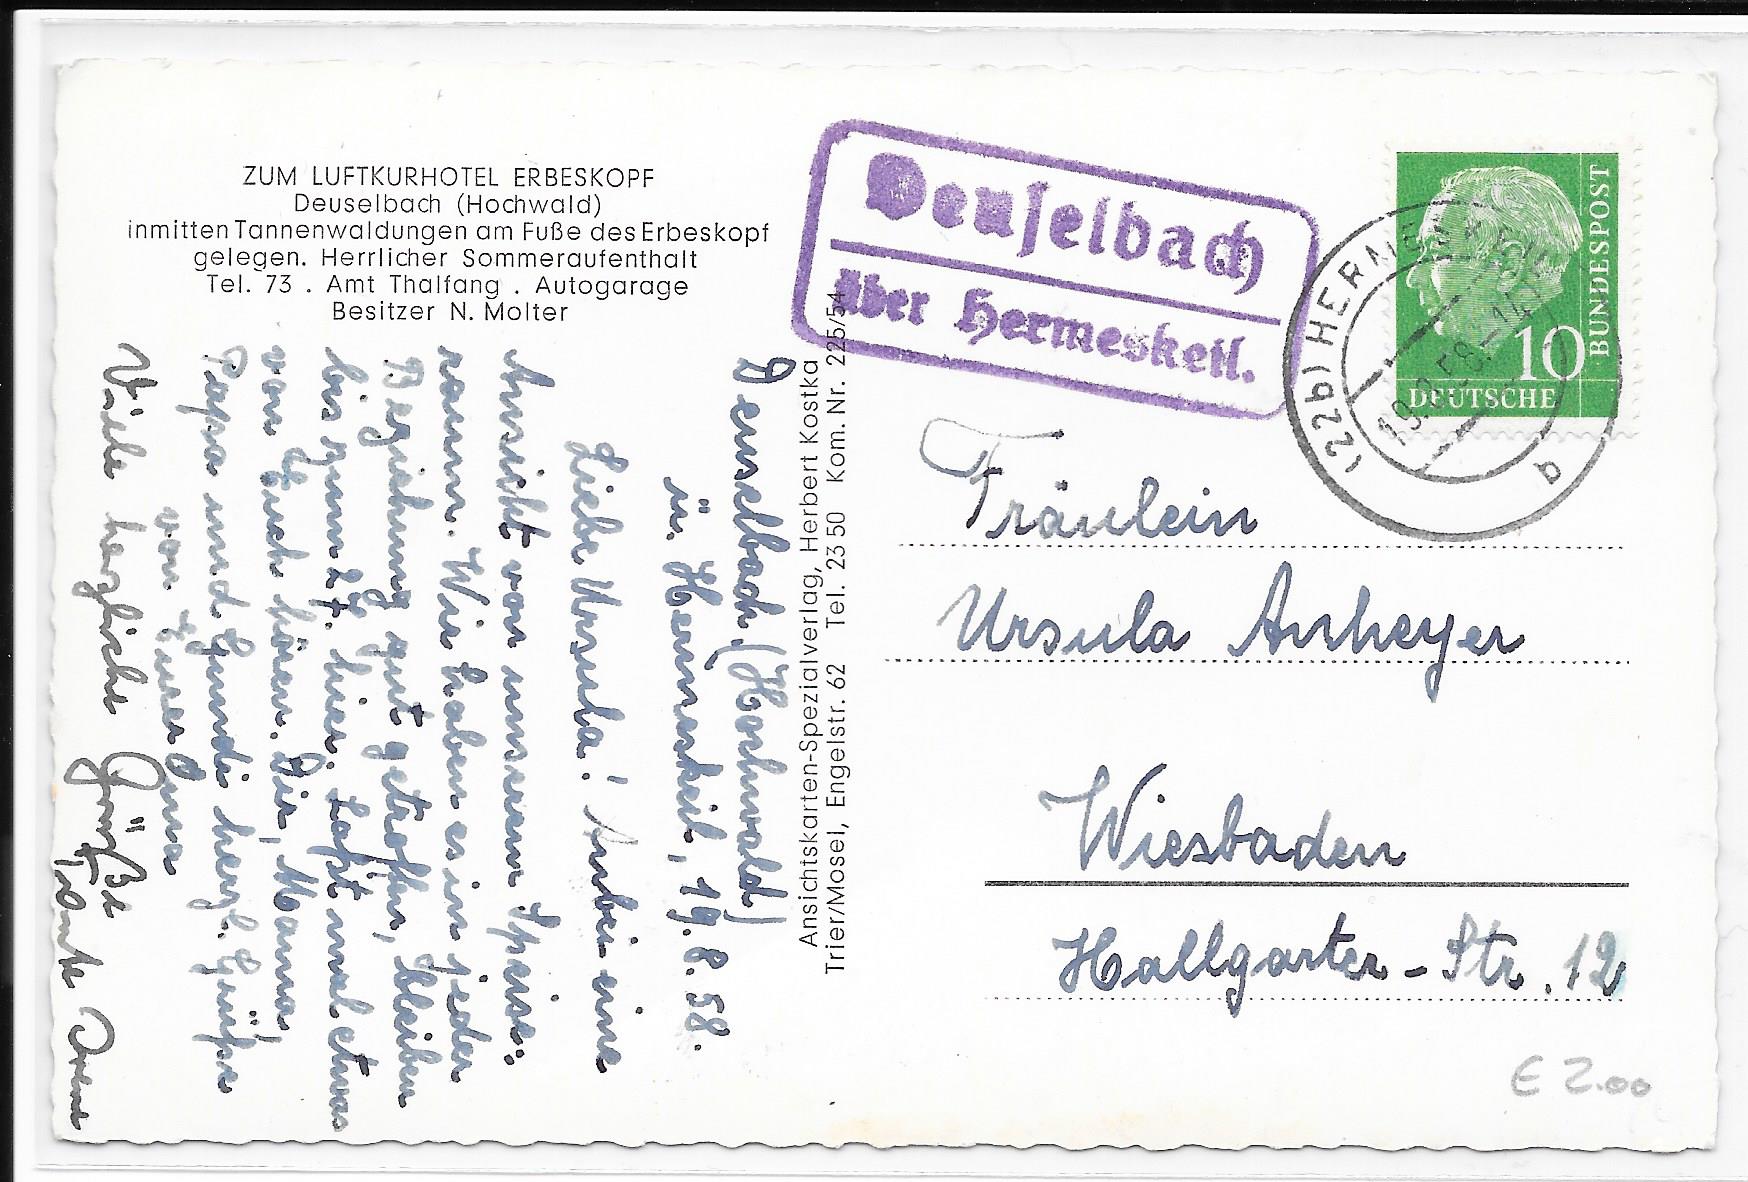 ZUM LUFTKURHOTEL ERBESKOPF
Deuselbach (Hochwald)
inmitten Tannenwaldungen am Fuße des Erbeskopf
gelegen. Herrlicher Sommeraufenthalt
Tel. 73 . Amt Thalfang . Autogarage
Besitzer N. Molter
Deuselbach
über Hermeskeil.
(22b) HERMESKEIL
19.8.58.-14
b
10
DEUTSCHE
BUNDESPOST
Deuselbach, (Hochwald)
ü. Hermeskeil, 19.8.58.
Liebe Ursula! Anbei eine
Ansicht von unserem Speise-
raum. Wir haben es in jeder
Beziehung gut getroffen, bleiben
bis zum 27. hier. Laßt mal etwas
von Euch hören. Dir, Mama,
Papa und Gundi herzl. Grüße
von Eurer Oma
Viele herzliche Grüße
Tante
Ansichtskarten-Spezialverlag, Herbert Kostka
Trier/Mosel, Engelstr. 62 Tel. 23 50 Kom. Nr. 225/54
Fräulein
Ursula Anheyer
Wiesbaden
Hallgarter-Str. 12
€ 2.00